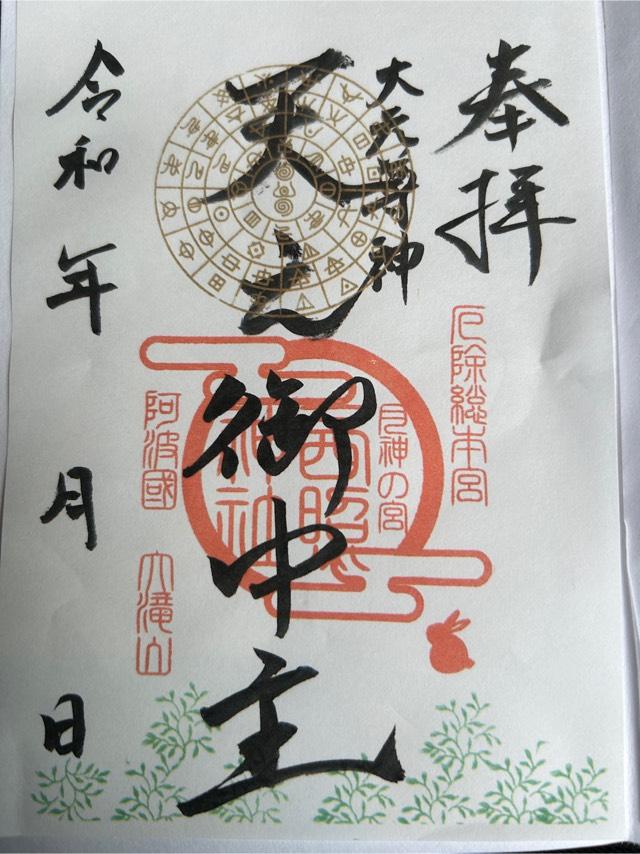 奉拝
厄除総本宮
大元尊神
月神の宮
天之御中主
西照神社
阿波國
大滝山
令和 年 月 日